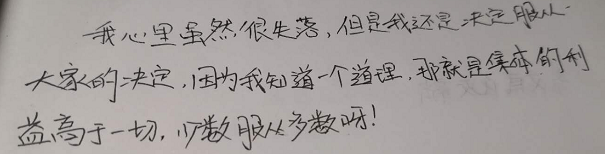 我心里虽然很失落，但是我还是决定服从
大家的决定，因为我知道一个道理，那就是集体的利
益高于一切，少数服从多数呀！